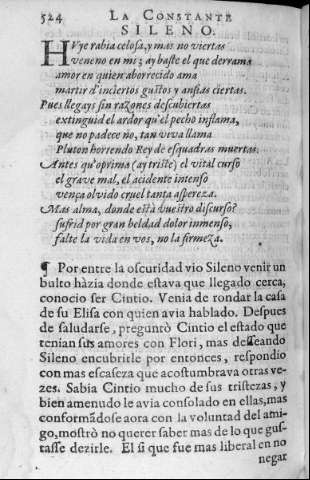 524 LA CONSTANTE
SILENO.
HVye rabia celosa, y mas no viertas
veneno en mi; ay baste el que derrama
amor en quien aborrecido ama
martir d'incièrtos gustos y ansias ciertas.
Pues llegays sin razones descubiertas
extinguid el ardor qu'el pecho inflama,
que no padece no, tan viva llama
Pluton horrendo Rey de esquadras muertas.
Antes qu'oprima (ay triste) el vital curso
el grave mal, el acidente intenso
vença olvido cruel tanta aspereza.
Mas alma, donde està vuestro discurso?
sufrid por gran beldad dolor inmenso,
falte la vida en vos, no la firmeza.
¶ Por entre la oscuridad vio Sileno venir un
bulto hàzia donde estava que llegado cerca,
conocio ser Cintio. Venia de rondar la casa
de su Elisa con quien avia hablado. Despues
de saludarse, preguntò Cintio el estado que
tenian sus amores con Flori, mas desseando
Sileno encubrirle por entonces, respondio
con mas escaseza que acostumbrava otras ve-
zes. Sabia Cintio mucho de sus tristezas, y
bien amenudo le avia consolado en ellas, mas
conformãdose aora con la voluntad del ami-
go, mostrò no querer saber mas de lo que gus-
tasse dezirle. El si que fue mas liberal en no
negar